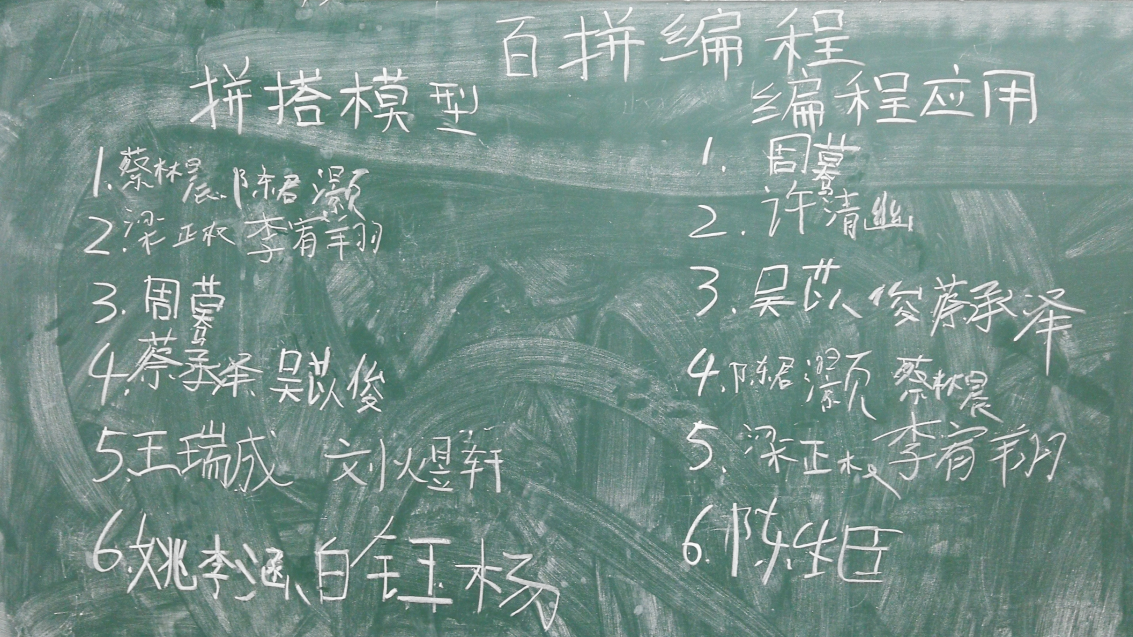 百拼编程
拼搭模型
1.蔡林晨、陈君灏
2.梁正权 李宥翔
3.周蓦
4.蔡承泽 吴苡俊
5.王瑞成 刘煜轩
6.姚李涵、白钰杨
编程应用
1.周蓦
2.许清幽
3.吴苡俊 蔡承泽
4.陈君灏 蔡林晨
5.梁正权 李宥翔
6.陈生臣